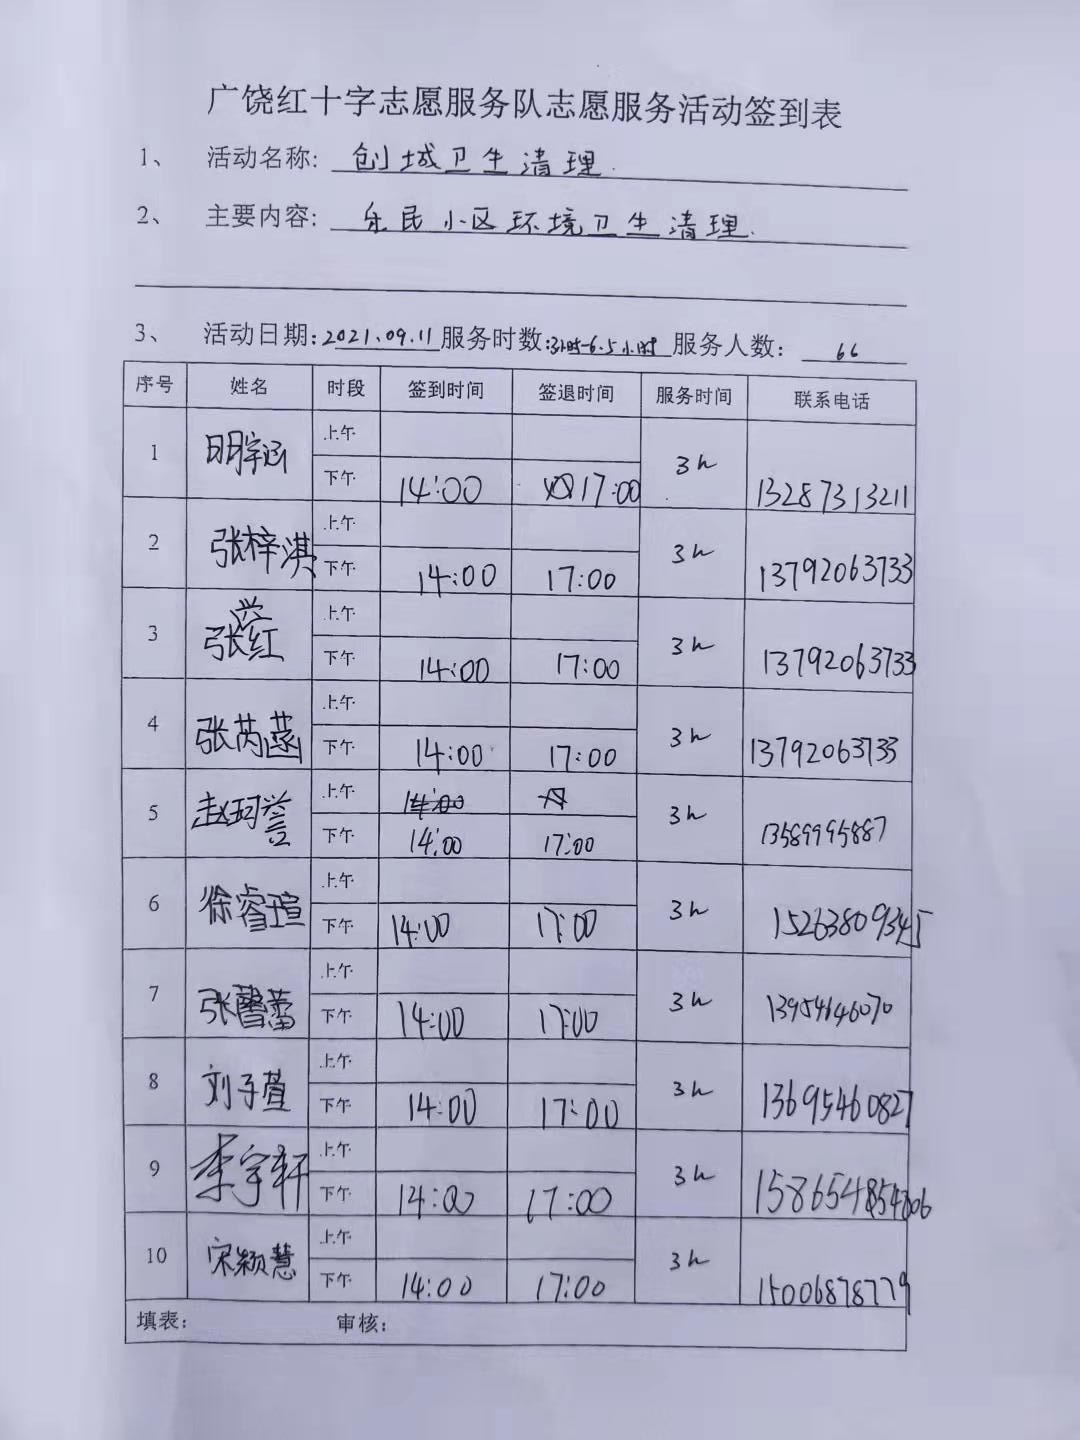 广饶红十字志愿服务队志愿服务活动签到表
1、 活动名称: 创城卫生清理.
2、 主要内容: 乐民小区环境卫生清理.
3、 活动日期: 2021.09.11 服务时数: 3小时-6.5小时 服务人数: 66
序号 姓名 时段 签到时间 签退时间 服务时间 联系电话
1 明宇涵 上午 3h 13287313211
下午 14:00 17:00
2 张梓淇 上午 3h 13792063733
下午 14:00 17:00
3 张红 上午 3h 13792063733
下午 14:00 17:00
4 张芮菡 上午 3h 13792063733
下午 14:00 17:00
5 赵珂誉 上午 14:00 3h 13589995887
下午 14:00 17:00
6 徐睿瑄 上午 3h 15263809345
下午 14:00 17:00
7 张馨蕾 上午 3h 13954646070
下午 14:00 17:00
8 刘子萱 上午 3h 13695460827
下午 14:00 17:00
9 李宇轩 上午 3h
下午 14:00 17:00
10 宋颖慧 上午 3h 15006878779
下午 14:00 17:00
填表: 审核: